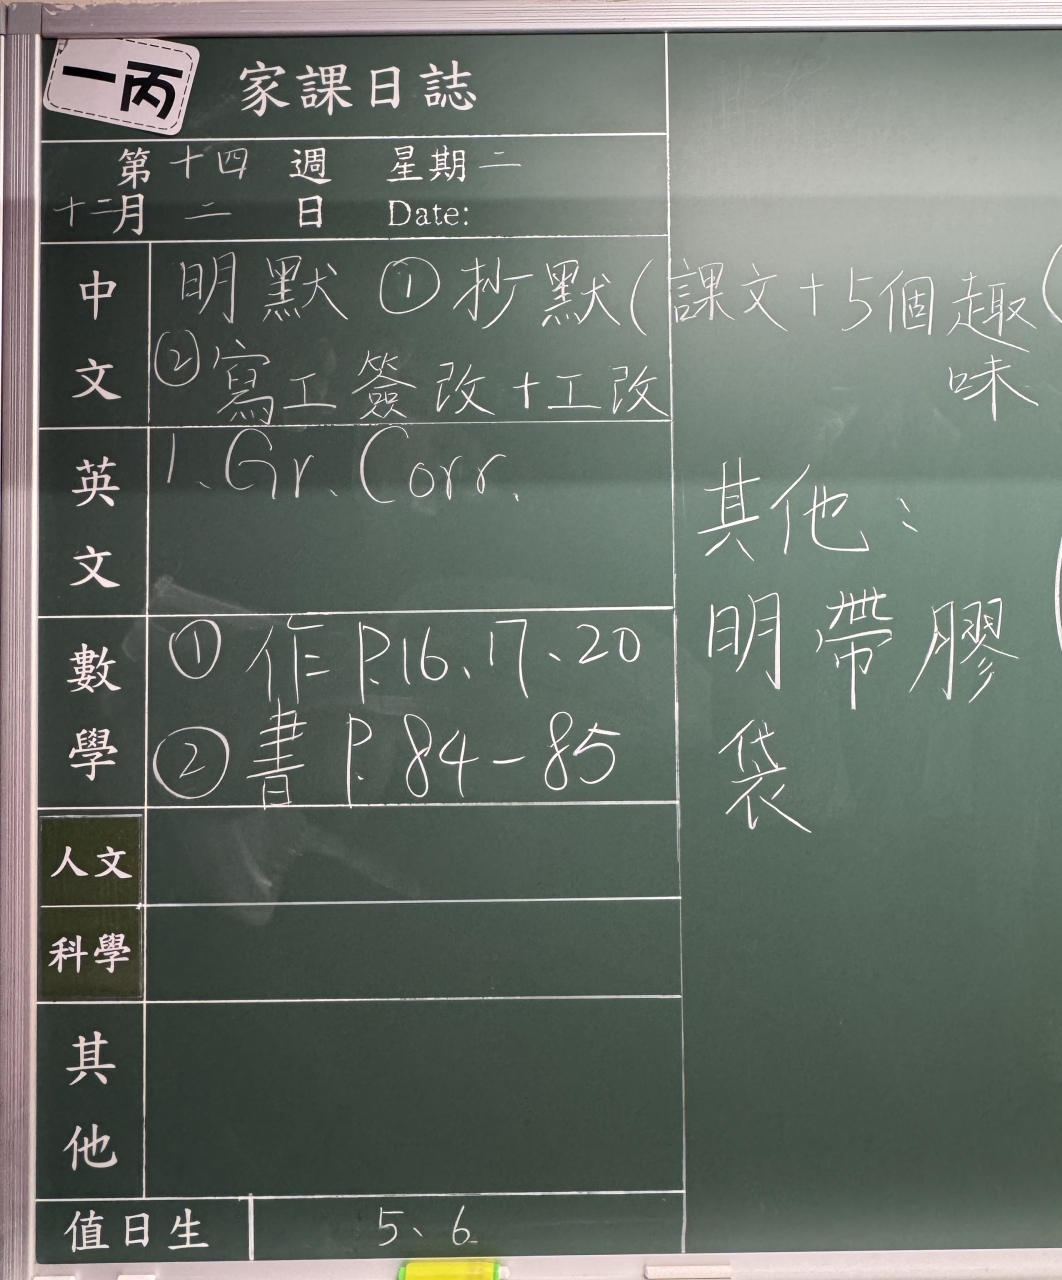 一丙 家課日誌
第十四週 星期二
十二月二日 Date:
中文 明默 ① 抄默(課文+5個趣味
② 寫工簽改+工改
英文 1. Gr. Corr.
數學 ① 作 P.16、17、20
② 書 P.84-85
人文
科學
其他
值日生 5、6
其他:
明帶膠
袋